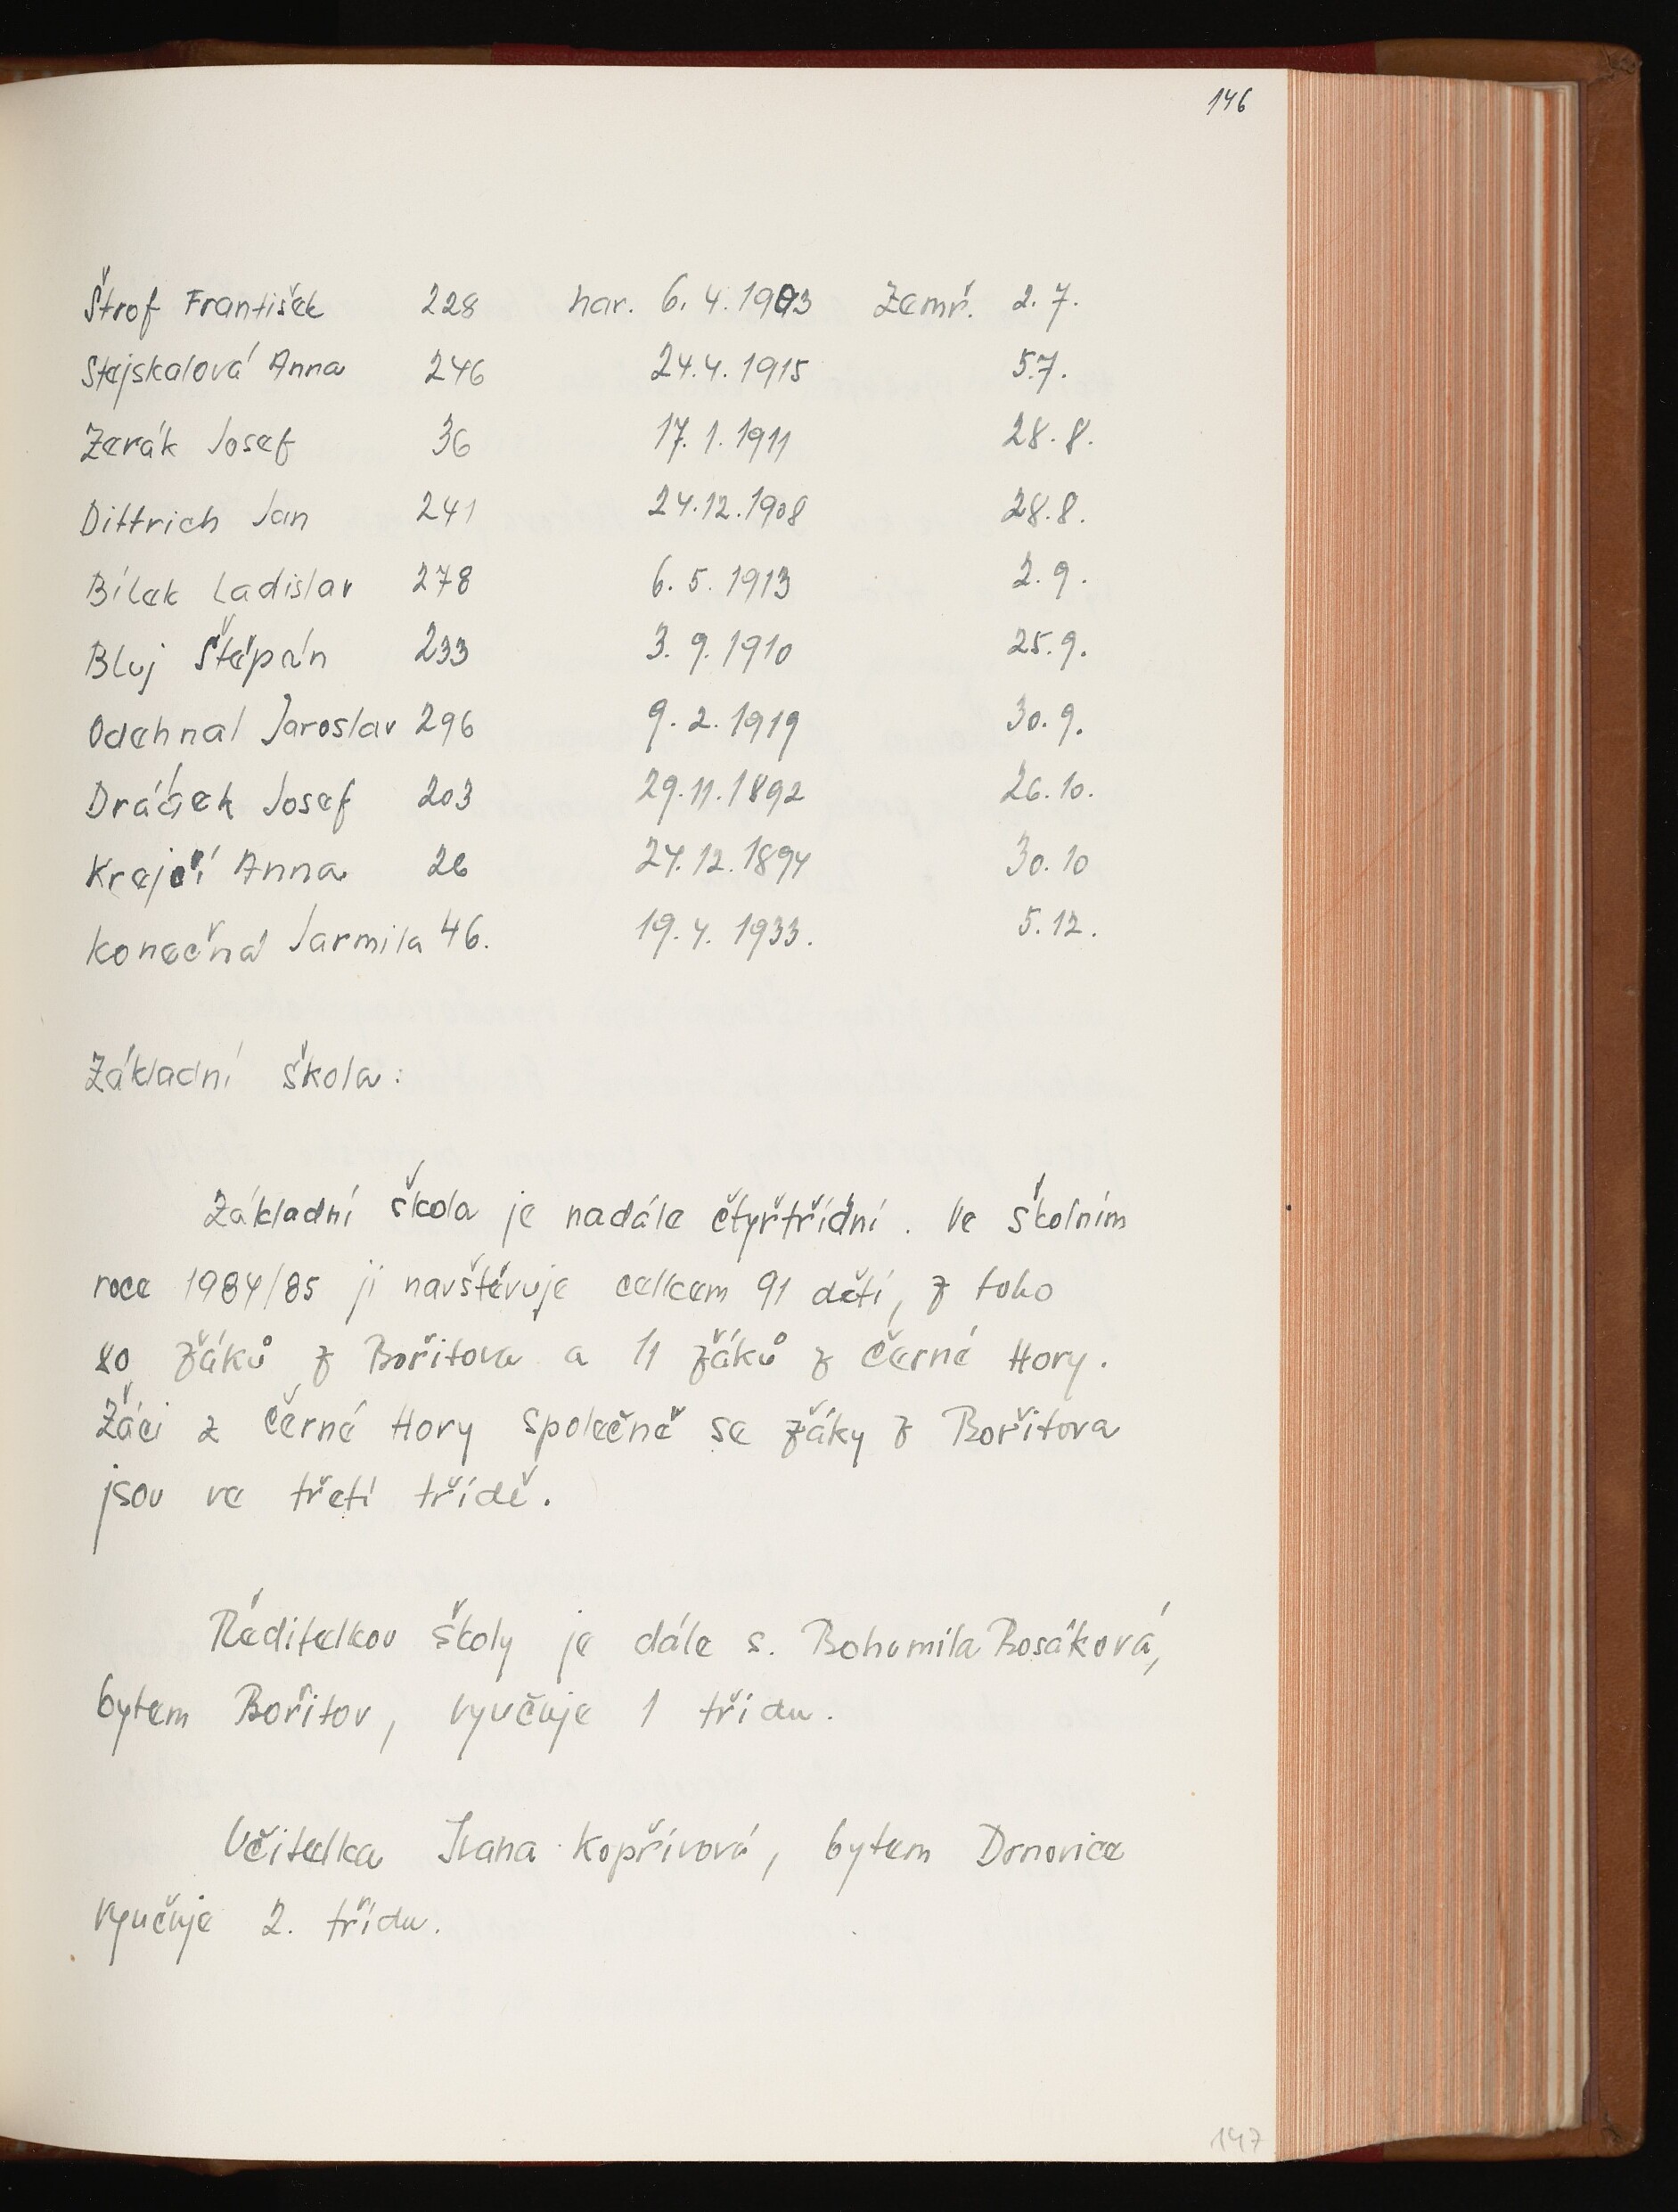 146
Štrof František 228 nar. 6. 4. 1903 zemř. 2. 7.
Stejskalová Anna 246 24. 4. 1915 5.7.
Zerák Josef 36 17. 1. 1911 28. 8.
Dittrich Jan 241 24.12.1908 28.8.
Bílek Ladislav 278 6. 5. 1913 2. 9.
Bluj Štěpán 233 3. 9. 1910 25. 9.
Odehnal Jaroslav 296 9. 2. 1919 30. 9.
Josef 203 29. 11. 1892 26. 10.
Krejčí Anna 26 24. 12. 1894 30. 10
Konečná Jarmila 46. 19. 4. 1933. 5. 12.
Základní škola:
Základní škola je nadále čtyřtřídní. Ve školním
roce 1984/85 ji navštěvuje celkem 91 dětí, z toho
80 žáků z Bořitova a 11 žáků z Černé Hory.
Žáci z Černé Hory společně se žáky z Bořitova
jsou ve třetí třídě.
Ředitelkou školy je dále s. Bohumila Bosáková,
bytem Bořitov, vyučuje 1 třídu.
Učitelka Ivana Kopřivová, bytem Drnovice
vyučuje 2. třídu.
147